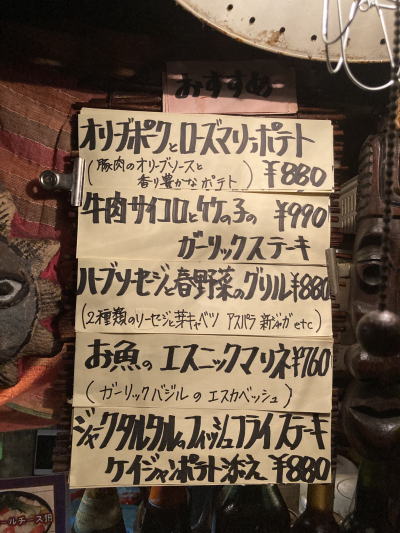 おすすめ
オリヂポクとローズマリィポテト
(豚肉のオリーブソースと
香り豊かなポテト) ¥880
牛肉サイコロと竹の子の ¥990
ガーリックステーキ
ハーブソーセージと春野菜のグリル¥880
(2種類のソーセージと芽キャベツ アスパラ 新ジャガ etc)
お魚の エスニックマリネ¥760
(ガーリックバジルの エスカベッシュ)
ジャークタルタルのフィッシュフライステーキ
ケイジャンポテト添え ¥880